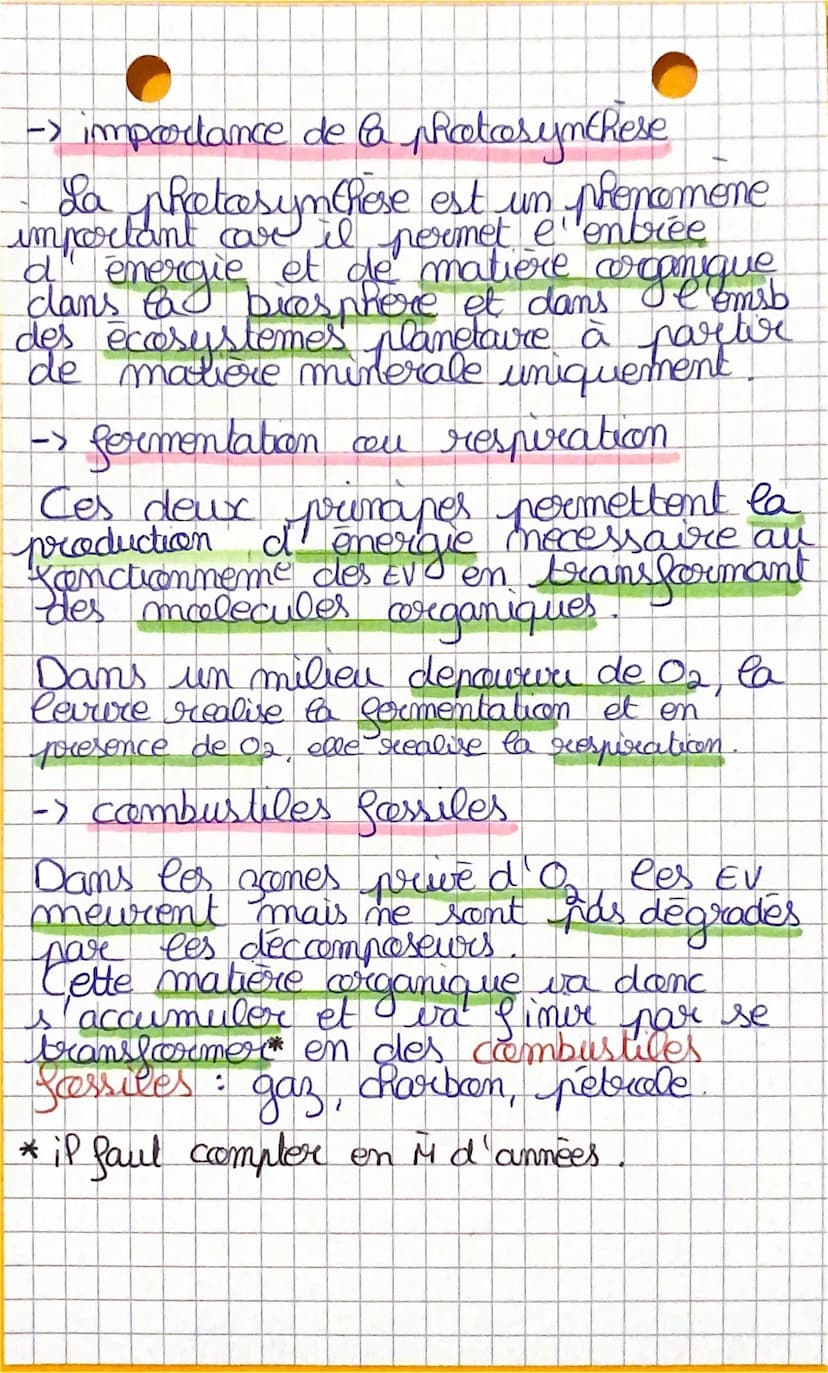 -> importance de la photosynthèse
La photosynthèse est un phénomène
important car il permet l'entrée
d'énergie et de matière organique
dans la biosphère et dans l'emsb
des écosystemes planetaire à partir
de matière minerale uniquement.
-> fermentation ou respiration
Ces deux principes permettent la
production d'énergie necessaire au
fonctionnement des EV en transformant
des molecules organiques.
Dans un milieu depourvu de O2, la
levure realise la fermentation et en
presence de O2, elle realise la respiration.
-> combustiles fossiles
Dans les zones privé d'O2 les EV
meurent mais ne sont pas dégradés
par les déccomposeurs.
Cette matière organique va donc
s'accumuler et va finir par se
transformer* en des combustiles
fossiles : gaz, charbon, pétrole.
* il faut compter en M d'années.